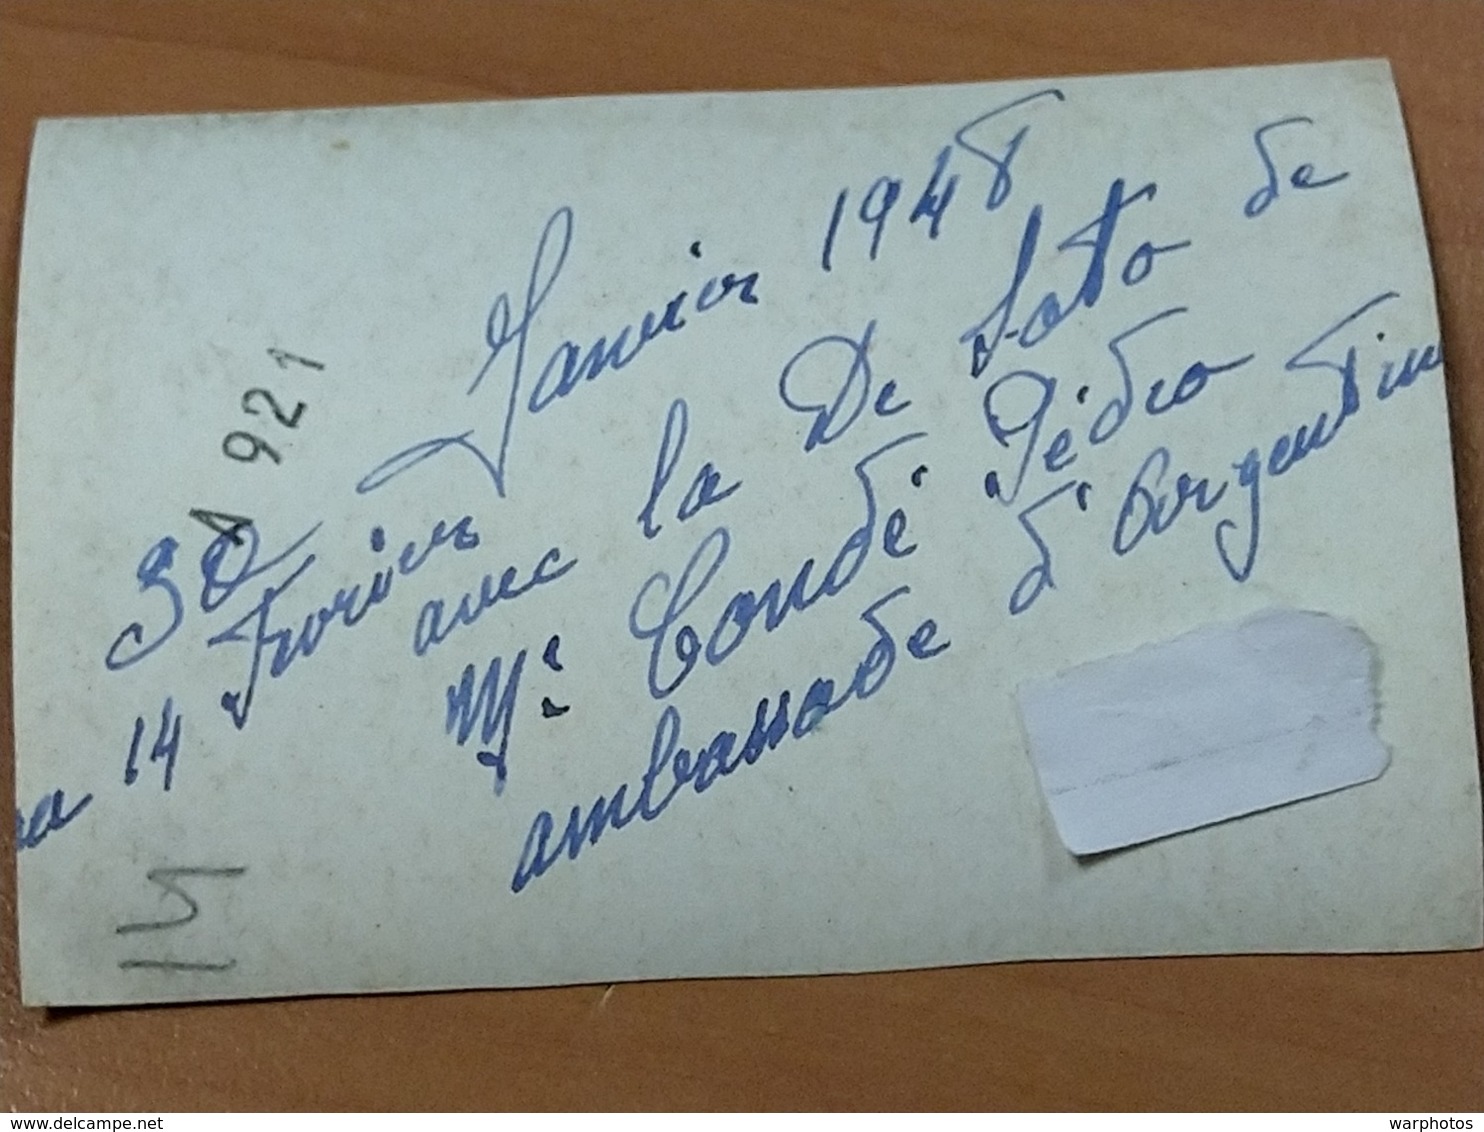 Janvier 1948
30
1 921
au 14 Fevrier
avec la De Soto de
Mr. Condé Pédro
ambassade d'Argentine
14
delcampe.net
warphotos